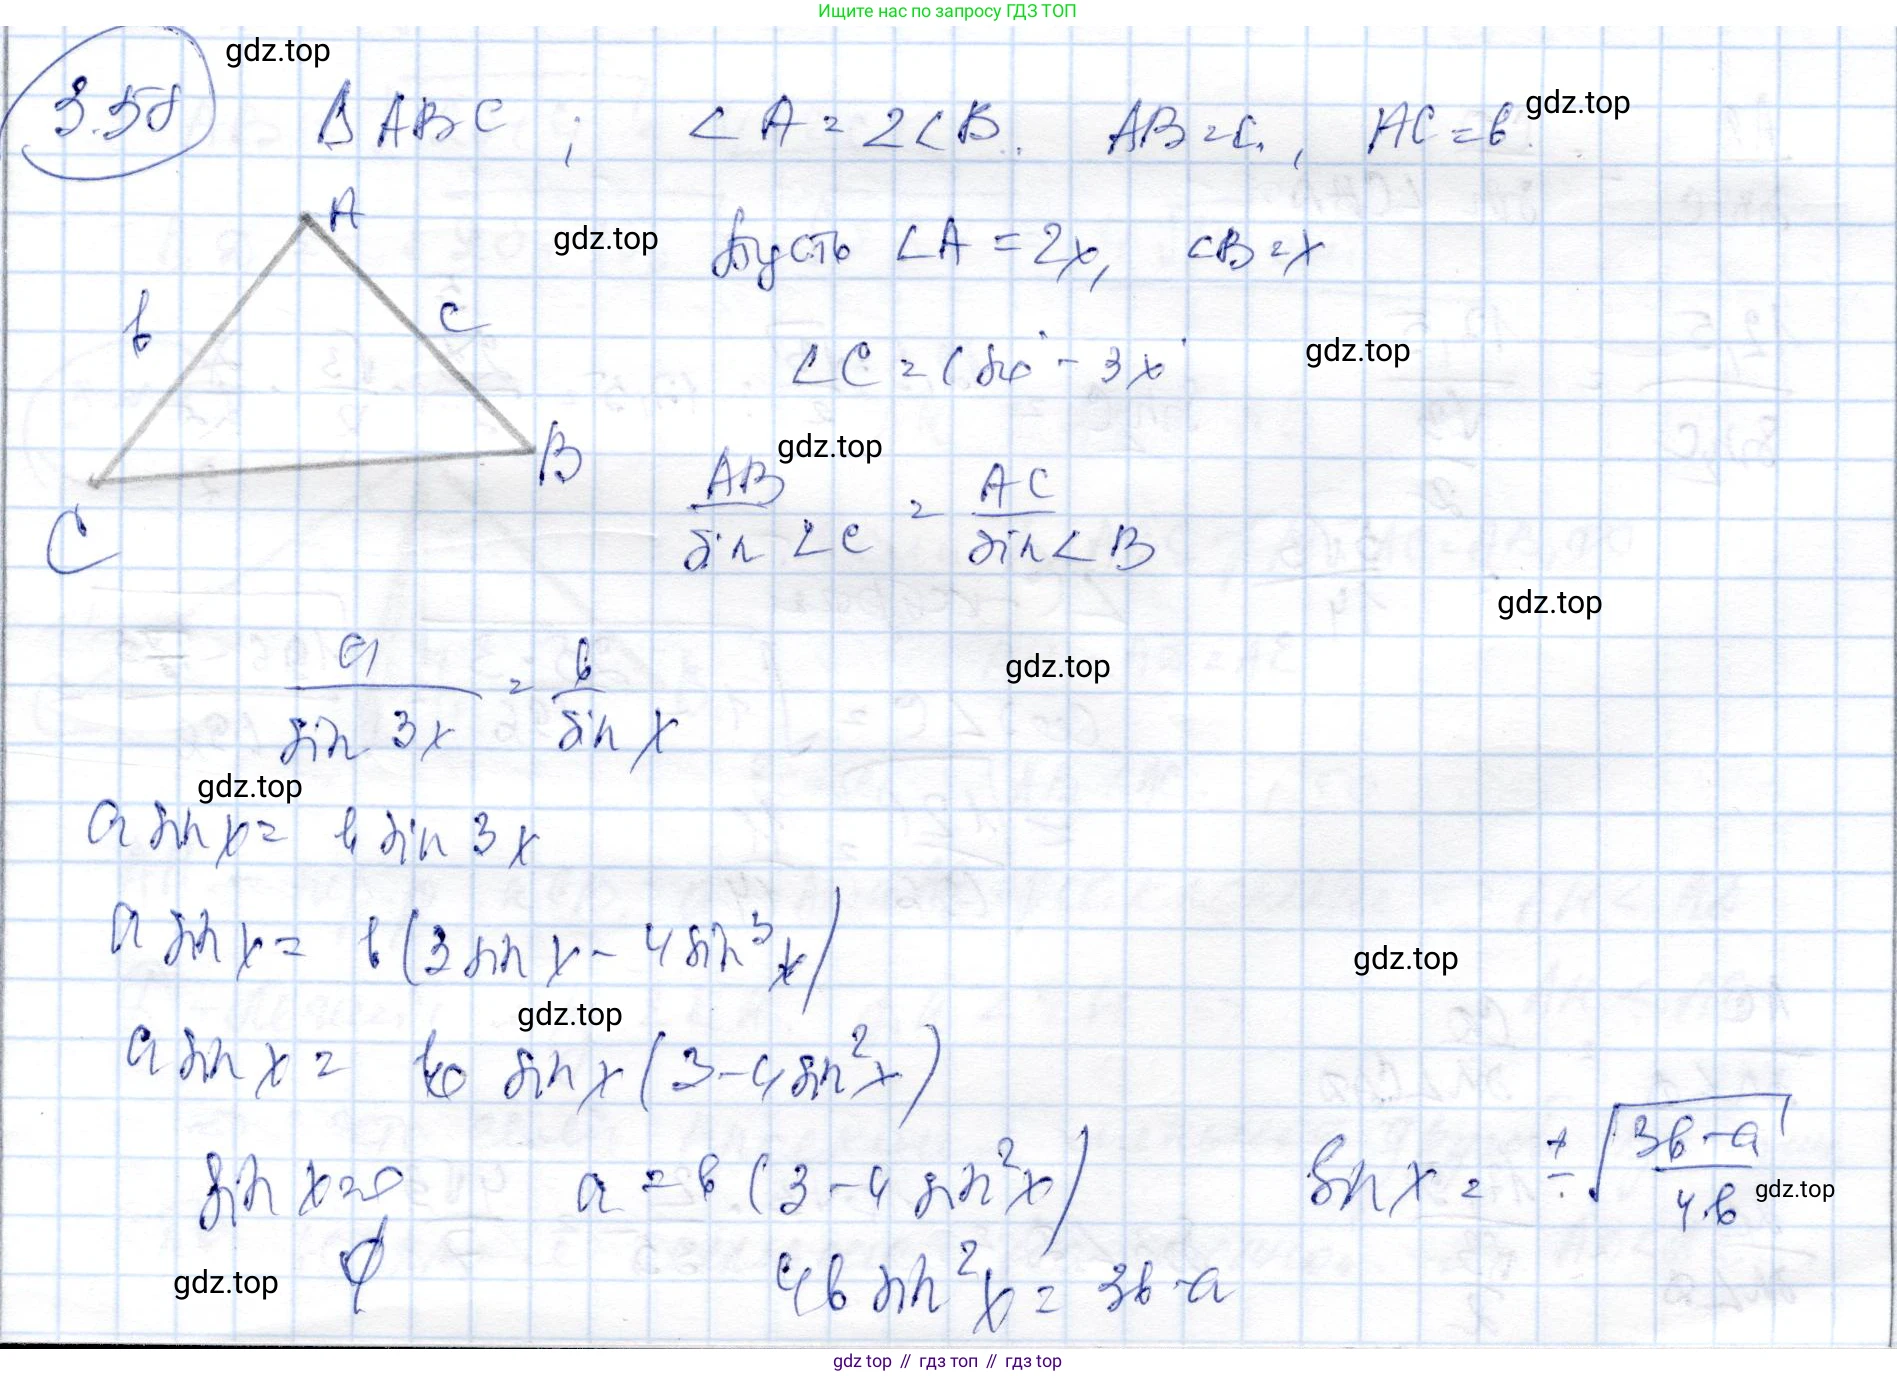 Ищите нас по запросу ГДЗ ТОП
3.58 gdz.top
Δ ABC ; ∠A = 2∠B. AB = c, AC = b. gdz.top
A
b
c
B
C
gdz.top Пусть ∠A = 2x, ∠B = x
∠C = 180° - 3x gdz.top
gdz.top
AB / sin ∠C = AC / sin ∠B
gdz.top
a / sin 3x = b / sin x gdz.top
gdz.top
a sin x = b sin 3x
a sin x = b (3 sin x - 4 sin³x) gdz.top
gdz.top
a sin x = b sin x (3 - 4 sin²x)
sin x = 0 a = b (3 - 4 sin²x) sin x = ± √((3b - a) / 4b) gdz.top
gdz.top 4b sin²x = 3b - a
gdz top // гдз топ // гдз top